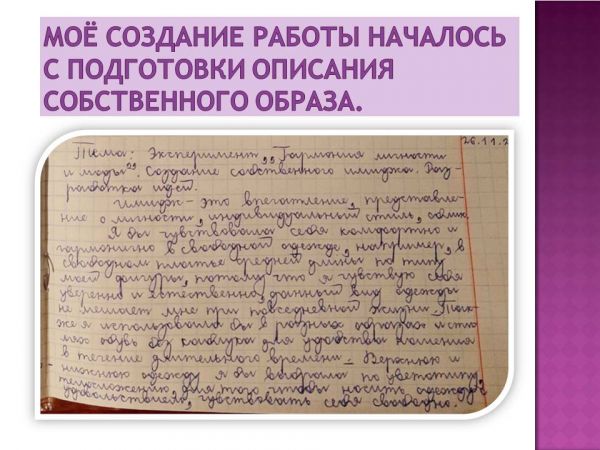 МОЁ СОЗДАНИЕ РАБОТЫ НАЧАЛОСЬ
С ПОДГОТОВКИ ОПИСАНИЯ
СОБСТВЕННОГО ОБРАЗА.
26.11.2
Тема: Эксперимент „Гармония личности
и моды". Создание собственного имиджа. Раз-
работка идей.
Имидж - это впечатление, представле-
ние о личности, индивидуальный стиль, облик.
Я бы чувствовала себя комфортно и
гармонично в свободной одежде, например, в
свободном платье средней длины по типу
моей фигуры, потому что я чувствую себя
уверенно и естественно, данный вид одежды
не мешает мне при повседневной жизни. Так-
же я использовала бы в разных образах и сти-
лях обувь без каблука для удобства ношения
в течение длительного времени. Верхнюю и
нижнюю одежду я бы выбрала по цветотипу,
телосложению, для того чтобы носить одежду с
удовольствием, чувствовать себя свободно.